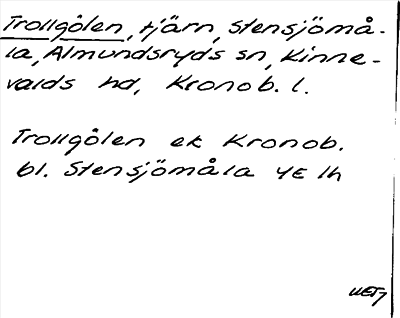 Trollgölen, tjärn, Stensjömå-
la, Almundsryds sn, Kinne-
valds hd, Kronob. l.
Trollgölen ek Kronob.
bl. Stensjömåla 4E 1h